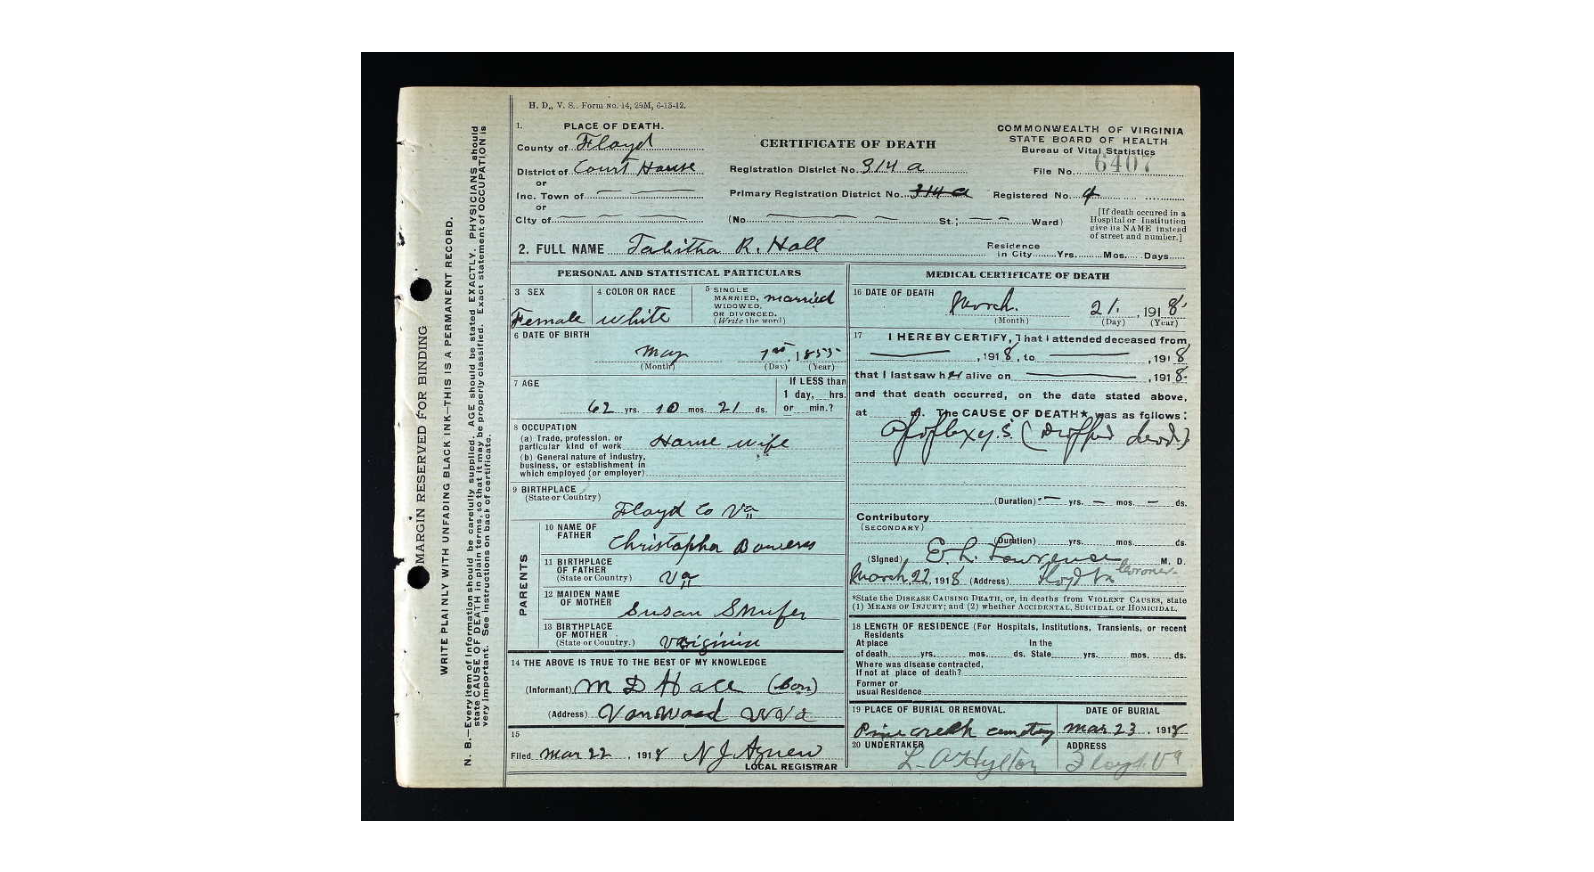 H. D., V. S.. Form No. 14, 25M, 6-13-12.
1. PLACE OF DEATH.
County of Floyd
District of Court House
or
Inc. Town of
or
City of
CERTIFICATE OF DEATH
Registration District No. 314 a
Primary Registration District No. 314 a
(No. St.; Ward)
COMMONWEALTH OF VIRGINIA
STATE BOARD OF HEALTH
Bureau of Vital Statistics
File No. 6407
Registered No. 9
[If death occured in a
Hospital or Institution
give its NAME instead
of street and number.]
2. FULL NAME Tabitha R. Hall
Residence
in City Yrs. Mos. Days
PERSONAL AND STATISTICAL PARTICULARS
3 SEX
Female
4 COLOR OR RACE
white
5 SINGLE
MARRIED,
WIDOWED,
OR DIVORCED.
(Write the word)
married
6 DATE OF BIRTH
May 1st, 1855
(Month) (Day) (Year)
7 AGE
62 yrs. 10 mos. 21 ds.
If LESS than
1 day, hrs.
or min.?
8 OCCUPATION
(a) Trade, profession, or
particular kind of work House wife
(b) General nature of industry,
business, or establishment in
which employed (or employer)
9 BIRTHPLACE
(State or Country)
Floyd Co Va
PARENTS
10 NAME OF
FATHER
Christopher
11 BIRTHPLACE
OF FATHER
(State or Country) Va
12 MAIDEN NAME
OF MOTHER
Susan
13 BIRTHPLACE
OF MOTHER
(State or Country.) Virginia
14 THE ABOVE IS TRUE TO THE BEST OF MY KNOWLEDGE
(Informant) M D Hall (Son)
(Address)
15
Filed Mar 22, 1918 N J Agnew
LOCAL REGISTRAR
MEDICAL CERTIFICATE OF DEATH
16 DATE OF DEATH
March. 21, 1918
(Month) (Day) (Year)
17 I HEREBY CERTIFY, That I attended deceased from
, 1918, to , 1918
that I last saw her alive on , 1918
and that death occurred, on the date stated above,
at M. The CAUSE OF DEATH★ was as follows:
Apoplexy. (Dropped dead.)
(Duration) yrs. mos. ds.
Contributory
(SECONDARY)
(Duration) yrs. mos. ds.
(Signed) E. L. Lawrence M. D.
Coroner
March 22, 1918 (Address) Floyd Va
*State the DISEASE CAUSING DEATH, or, in deaths from VIOLENT CAUSES, state
(1) MEANS OF INJURY; and (2) whether ACCIDENTAL, SUICIDAL or HOMICIDAL.
18 LENGTH OF RESIDENCE (For Hospitals, Institutions, Transients, or recent
Residents
At place In the
of death yrs. mos. ds. State yrs. mos. ds.
Where was disease contracted,
If not at place of death?
Former or
usual Residence
19 PLACE OF BURIAL OR REMOVAL.
Pine creek cemetery
DATE OF BURIAL
Mar 23, 1918
20 UNDERTAKER
L. A Hylton
ADDRESS
Floyd. Va
MARGIN RESERVED FOR BINDING
WRITE PLAINLY WITH UNFADING BLACK INK—THIS IS A PERMANENT RECORD.
N. B.—Every item of Information should be carefully supplied. AGE should be stated EXACTLY. PHYSICIANS should
state CAUSE OF DEATH in plain terms, so that it may be properly classified. Exact statement of OCCUPATION is
very important. See instructions on back of certificate.